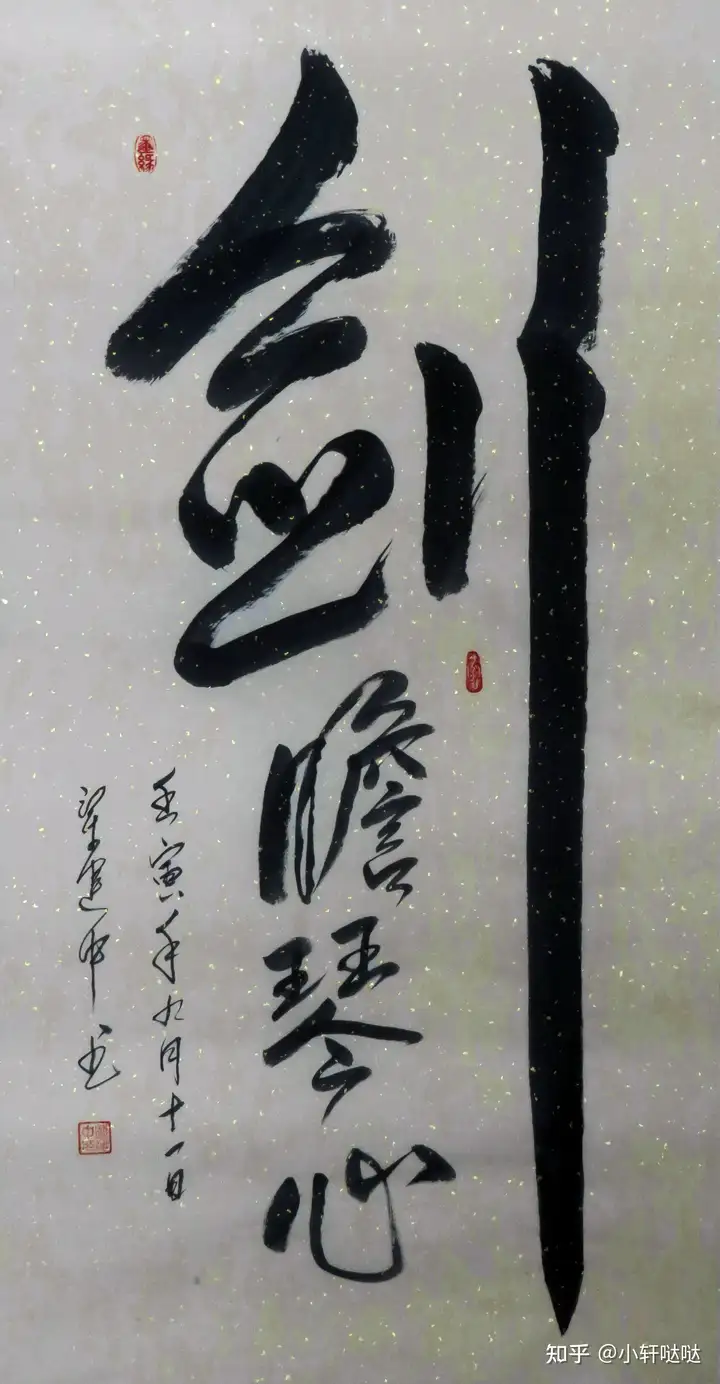 剑
膽琴心
壬寅年九月十一日
梁建中书
知乎 @小轩哒哒